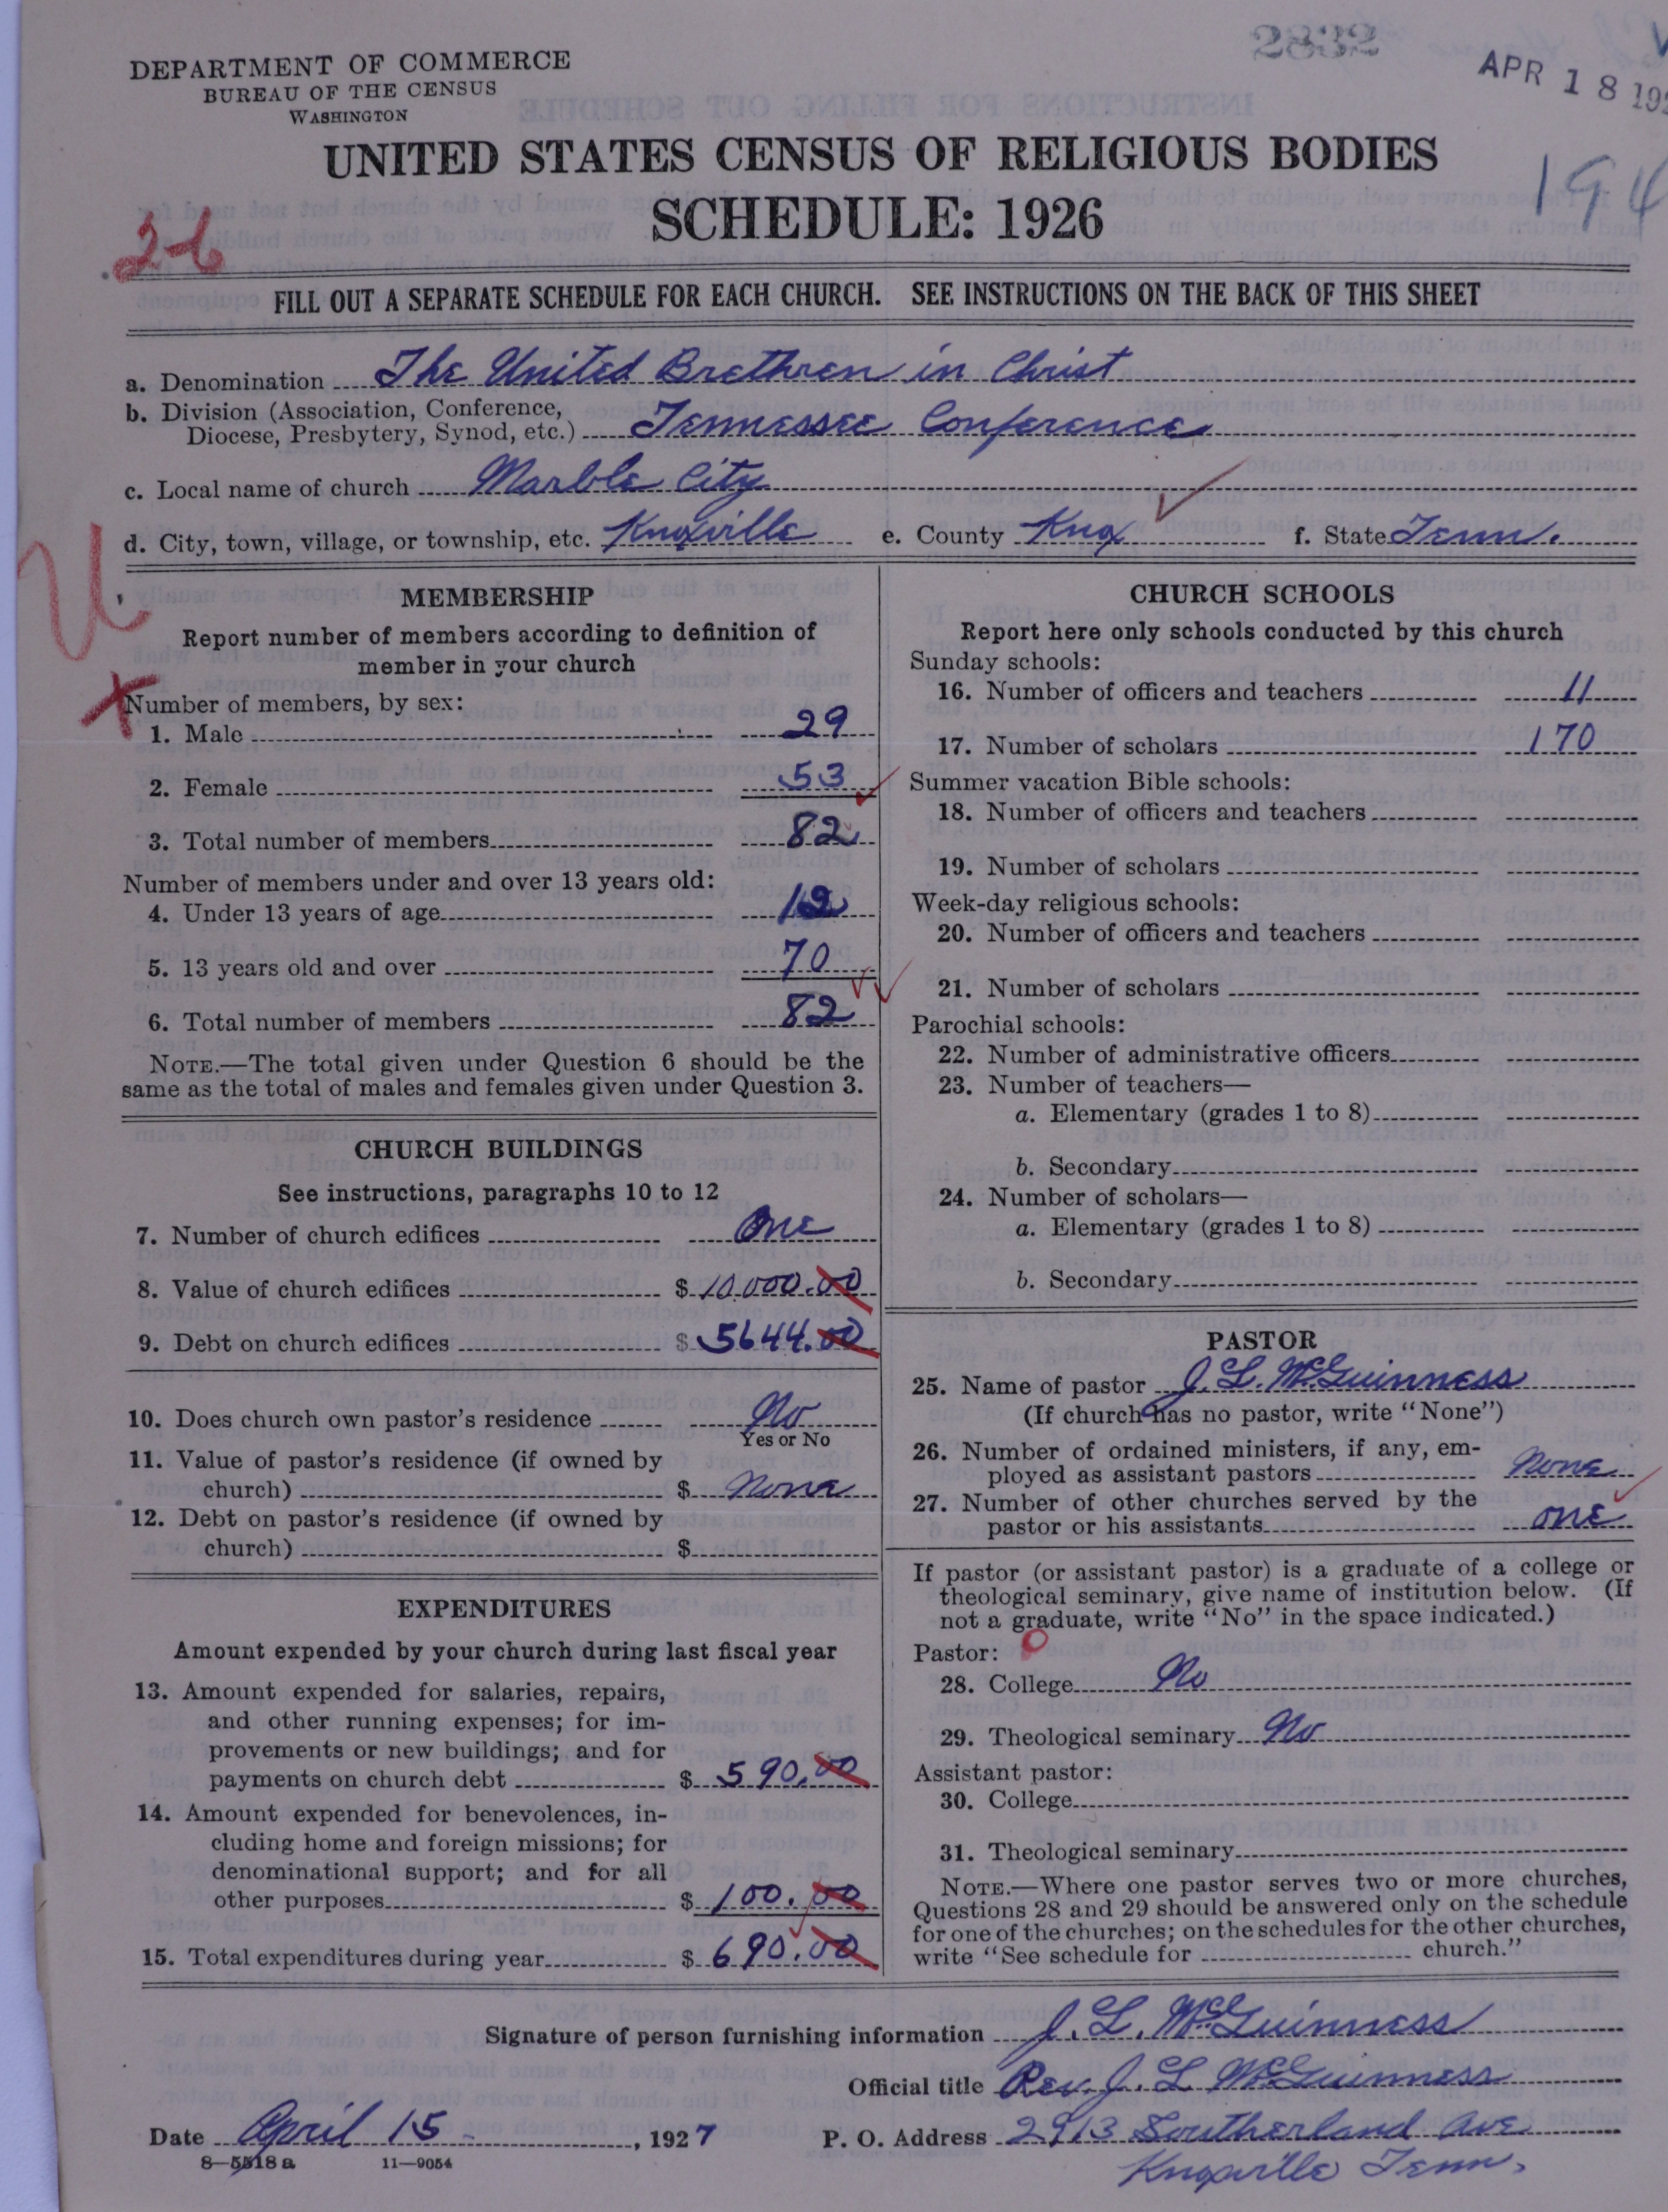 2832
APR 18 19
194
DEPARTMENT OF COMMERCE
BUREAU OF THE CENSUS
WASHINGTON
UNITED STATES CENSUS OF RELIGIOUS BODIES
SCHEDULE: 1926
26
FILL OUT A SEPARATE SCHEDULE FOR EACH CHURCH. SEE INSTRUCTIONS ON THE BACK OF THIS SHEET
a. Denomination The United Brethren in Christ
b. Division (Association, Conference,
Diocese, Presbytery, Synod, etc.) Tennessee Conference
c. Local name of church Marble City
d. City, town, village, or township, etc. Knoxville e. County Knox f. State Tenn.
U
MEMBERSHIP
Report number of members according to definition of
member in your church
X
Number of members, by sex:
1. Male 29
2. Female 53
3. Total number of members 82
Number of members under and over 13 years old:
4. Under 13 years of age 12
5. 13 years old and over 70
6. Total number of members 82
NOTE.—The total given under Question 6 should be the
same as the total of males and females given under Question 3.
CHURCH BUILDINGS
See instructions, paragraphs 10 to 12
7. Number of church edifices One
8. Value of church edifices $ 10000.00
9. Debt on church edifices $ 5644.00
10. Does church own pastor's residence No
Yes or No
11. Value of pastor's residence (if owned by
church) $ None
12. Debt on pastor's residence (if owned by
church) $
EXPENDITURES
Amount expended by your church during last fiscal year
13. Amount expended for salaries, repairs,
and other running expenses; for im-
provements or new buildings; and for
payments on church debt $ 590.00
14. Amount expended for benevolences, in-
cluding home and foreign missions; for
denominational support; and for all
other purposes $ 100.00
15. Total expenditures during year $ 690.00
CHURCH SCHOOLS
Report here only schools conducted by this church
Sunday schools:
16. Number of officers and teachers 11
17. Number of scholars 170
Summer vacation Bible schools:
18. Number of officers and teachers
19. Number of scholars
Week-day religious schools:
20. Number of officers and teachers
21. Number of scholars
Parochial schools:
22. Number of administrative officers
23. Number of teachers—
a. Elementary (grades 1 to 8)
b. Secondary
24. Number of scholars—
a. Elementary (grades 1 to 8)
b. Secondary
PASTOR
25. Name of pastor J. L. McGuinness
(If church has no pastor, write "None")
26. Number of ordained ministers, if any, em-
ployed as assistant pastors None
27. Number of other churches served by the
pastor or his assistants one
If pastor (or assistant pastor) is a graduate of a college or
theological seminary, give name of institution below. (If
not a graduate, write "No" in the space indicated.)
Pastor: 0
28. College No
29. Theological seminary No
Assistant pastor:
30. College
31. Theological seminary
NOTE.—Where one pastor serves two or more churches,
Questions 28 and 29 should be answered only on the schedule
for one of the churches; on the schedules for the other churches,
write "See schedule for church."
Signature of person furnishing information J. L. McGuinness
Official title Rev. J. L McGuinness
Date April 15 , 1927 P. O. Address 2913 Southerland Ave
Knoxville Tenn.
8—5518 a 11—9054